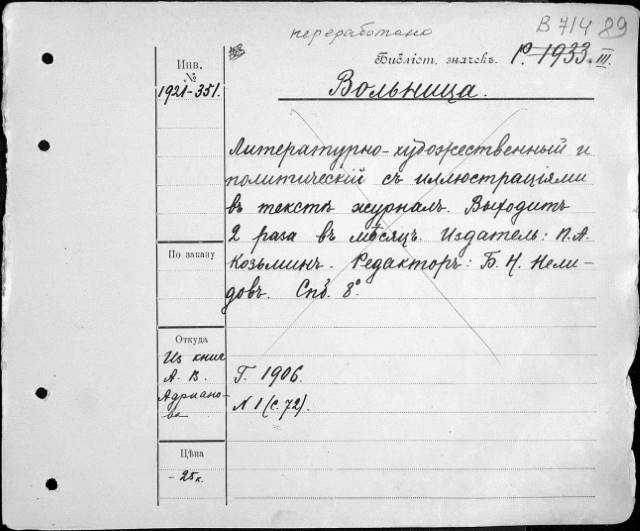 переработано
В 714 89
Инв.
№
1921-351.
Библіот. значекъ. 1933. III.
Вольница.
Литературно-художественный и
политическій съ иллюстраціями
въ текстѣ журналъ. Выходитъ
2 раза въ мѣсяцъ. Издатель: П. А.
Козьминъ. Редакторъ: Б. Н. Нели-
довъ. Спб. 8°.
По заказу
Откуда
Из книг
А. В.
Адриано-
ва
Г. 1906.
N 1 (с. 72).
Цѣна
- 25 к.